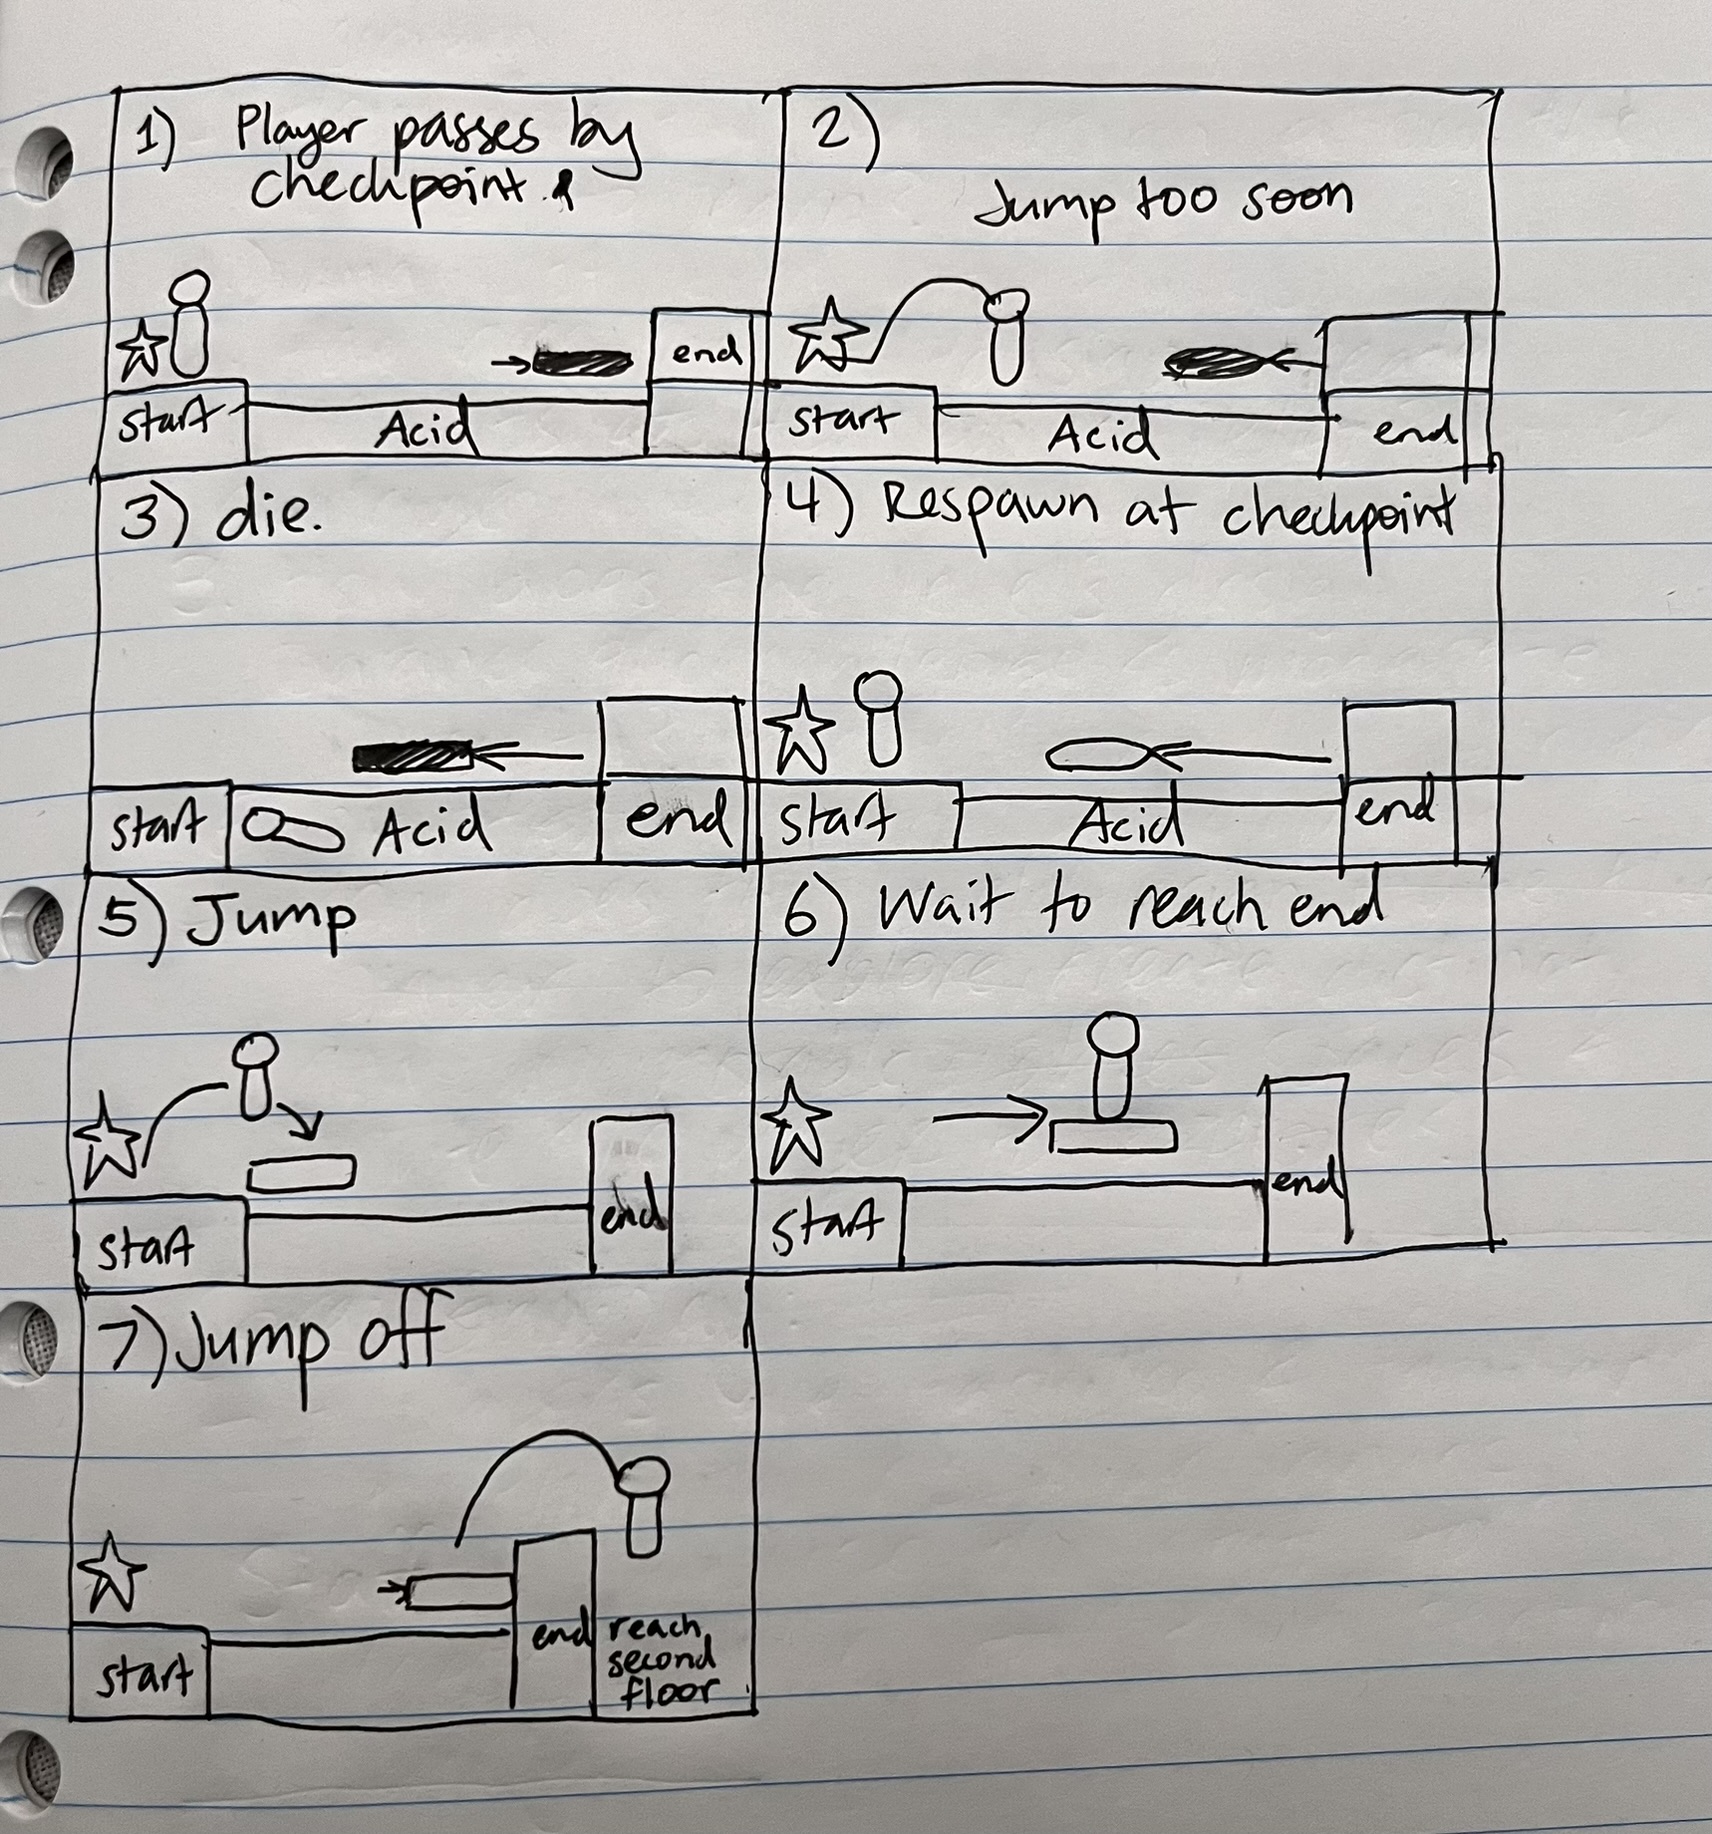 1) Player passes by
checkpoint.
end
start
Acid
2)
Jump too soon
start
Acid
end
3) die.
start
Acid
end
4) Respawn at checkpoint
start
Acid
end
5) Jump
start
end
6) Wait to reach end
start
end
7) Jump off
start
end
reach
second
floor